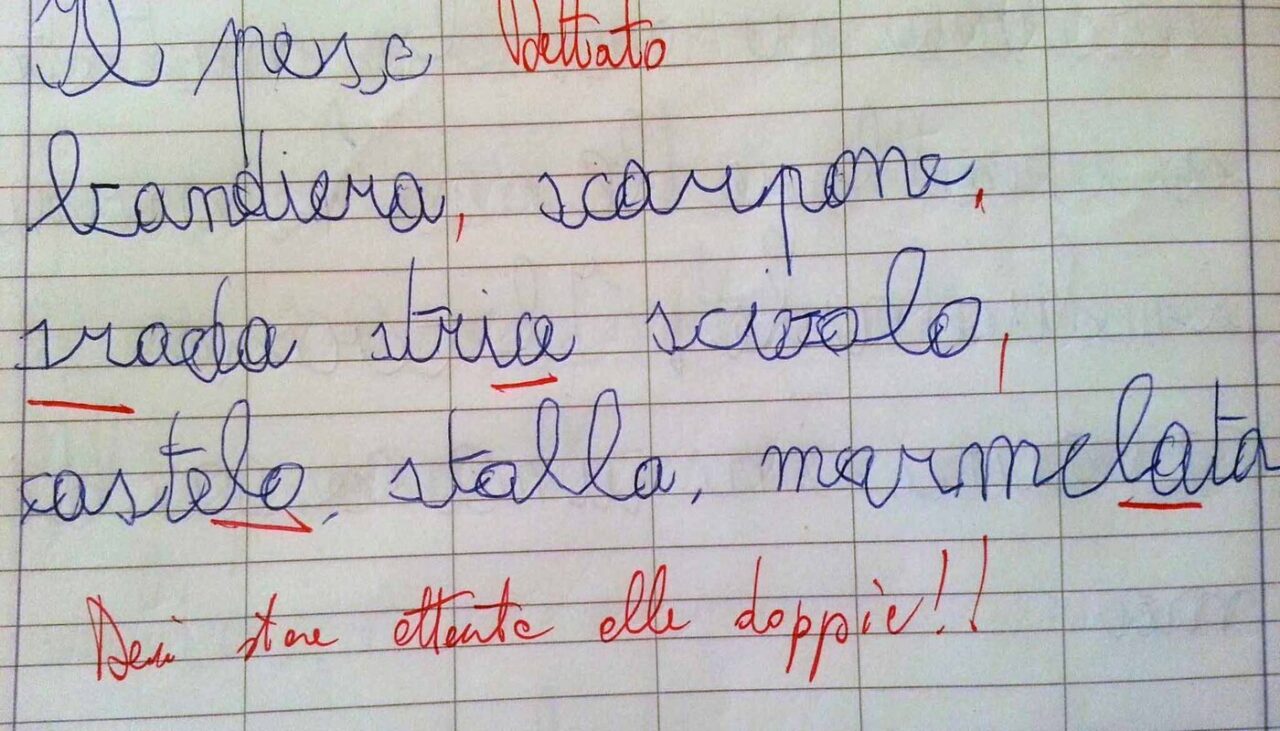 Il pesse Dettato
bandiera, scarpone,
srada strica scivolo,
castelo, stalla, marmelata
Devi stare attenta alle doppie!!